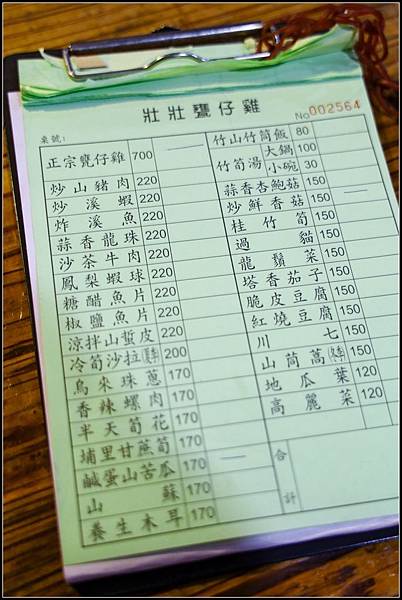 壯壯甕仔雞
No 002564
桌號:
正宗甕仔雞 700
炒山豬肉 220
炒溪蝦 220
炸溪魚 220
蒜香龍珠 220
沙茶牛肉 220
鳳梨蝦球 220
糖醋魚片 220
椒鹽魚片 220
涼拌山蜇皮 220
冷筍沙拉 200
烏來珠蔥 170
香辣螺肉 170
半天筍花 170
埔里甘蔗筍 170
鹹蛋山苦瓜 170
山蘇 170
養生木耳 170
竹山竹筒飯 80
竹筍湯 大鍋 100
小碗 30
蒜香杏鮑菇 150
炒鮮香菇 150
桂竹筍 150
過貓 150
龍鬚菜 150
塔香茄子 150
脆皮豆腐 150
紅燒豆腐 150
川七 150
山茼蒿 150
地瓜葉 120
高麗菜 120
合計